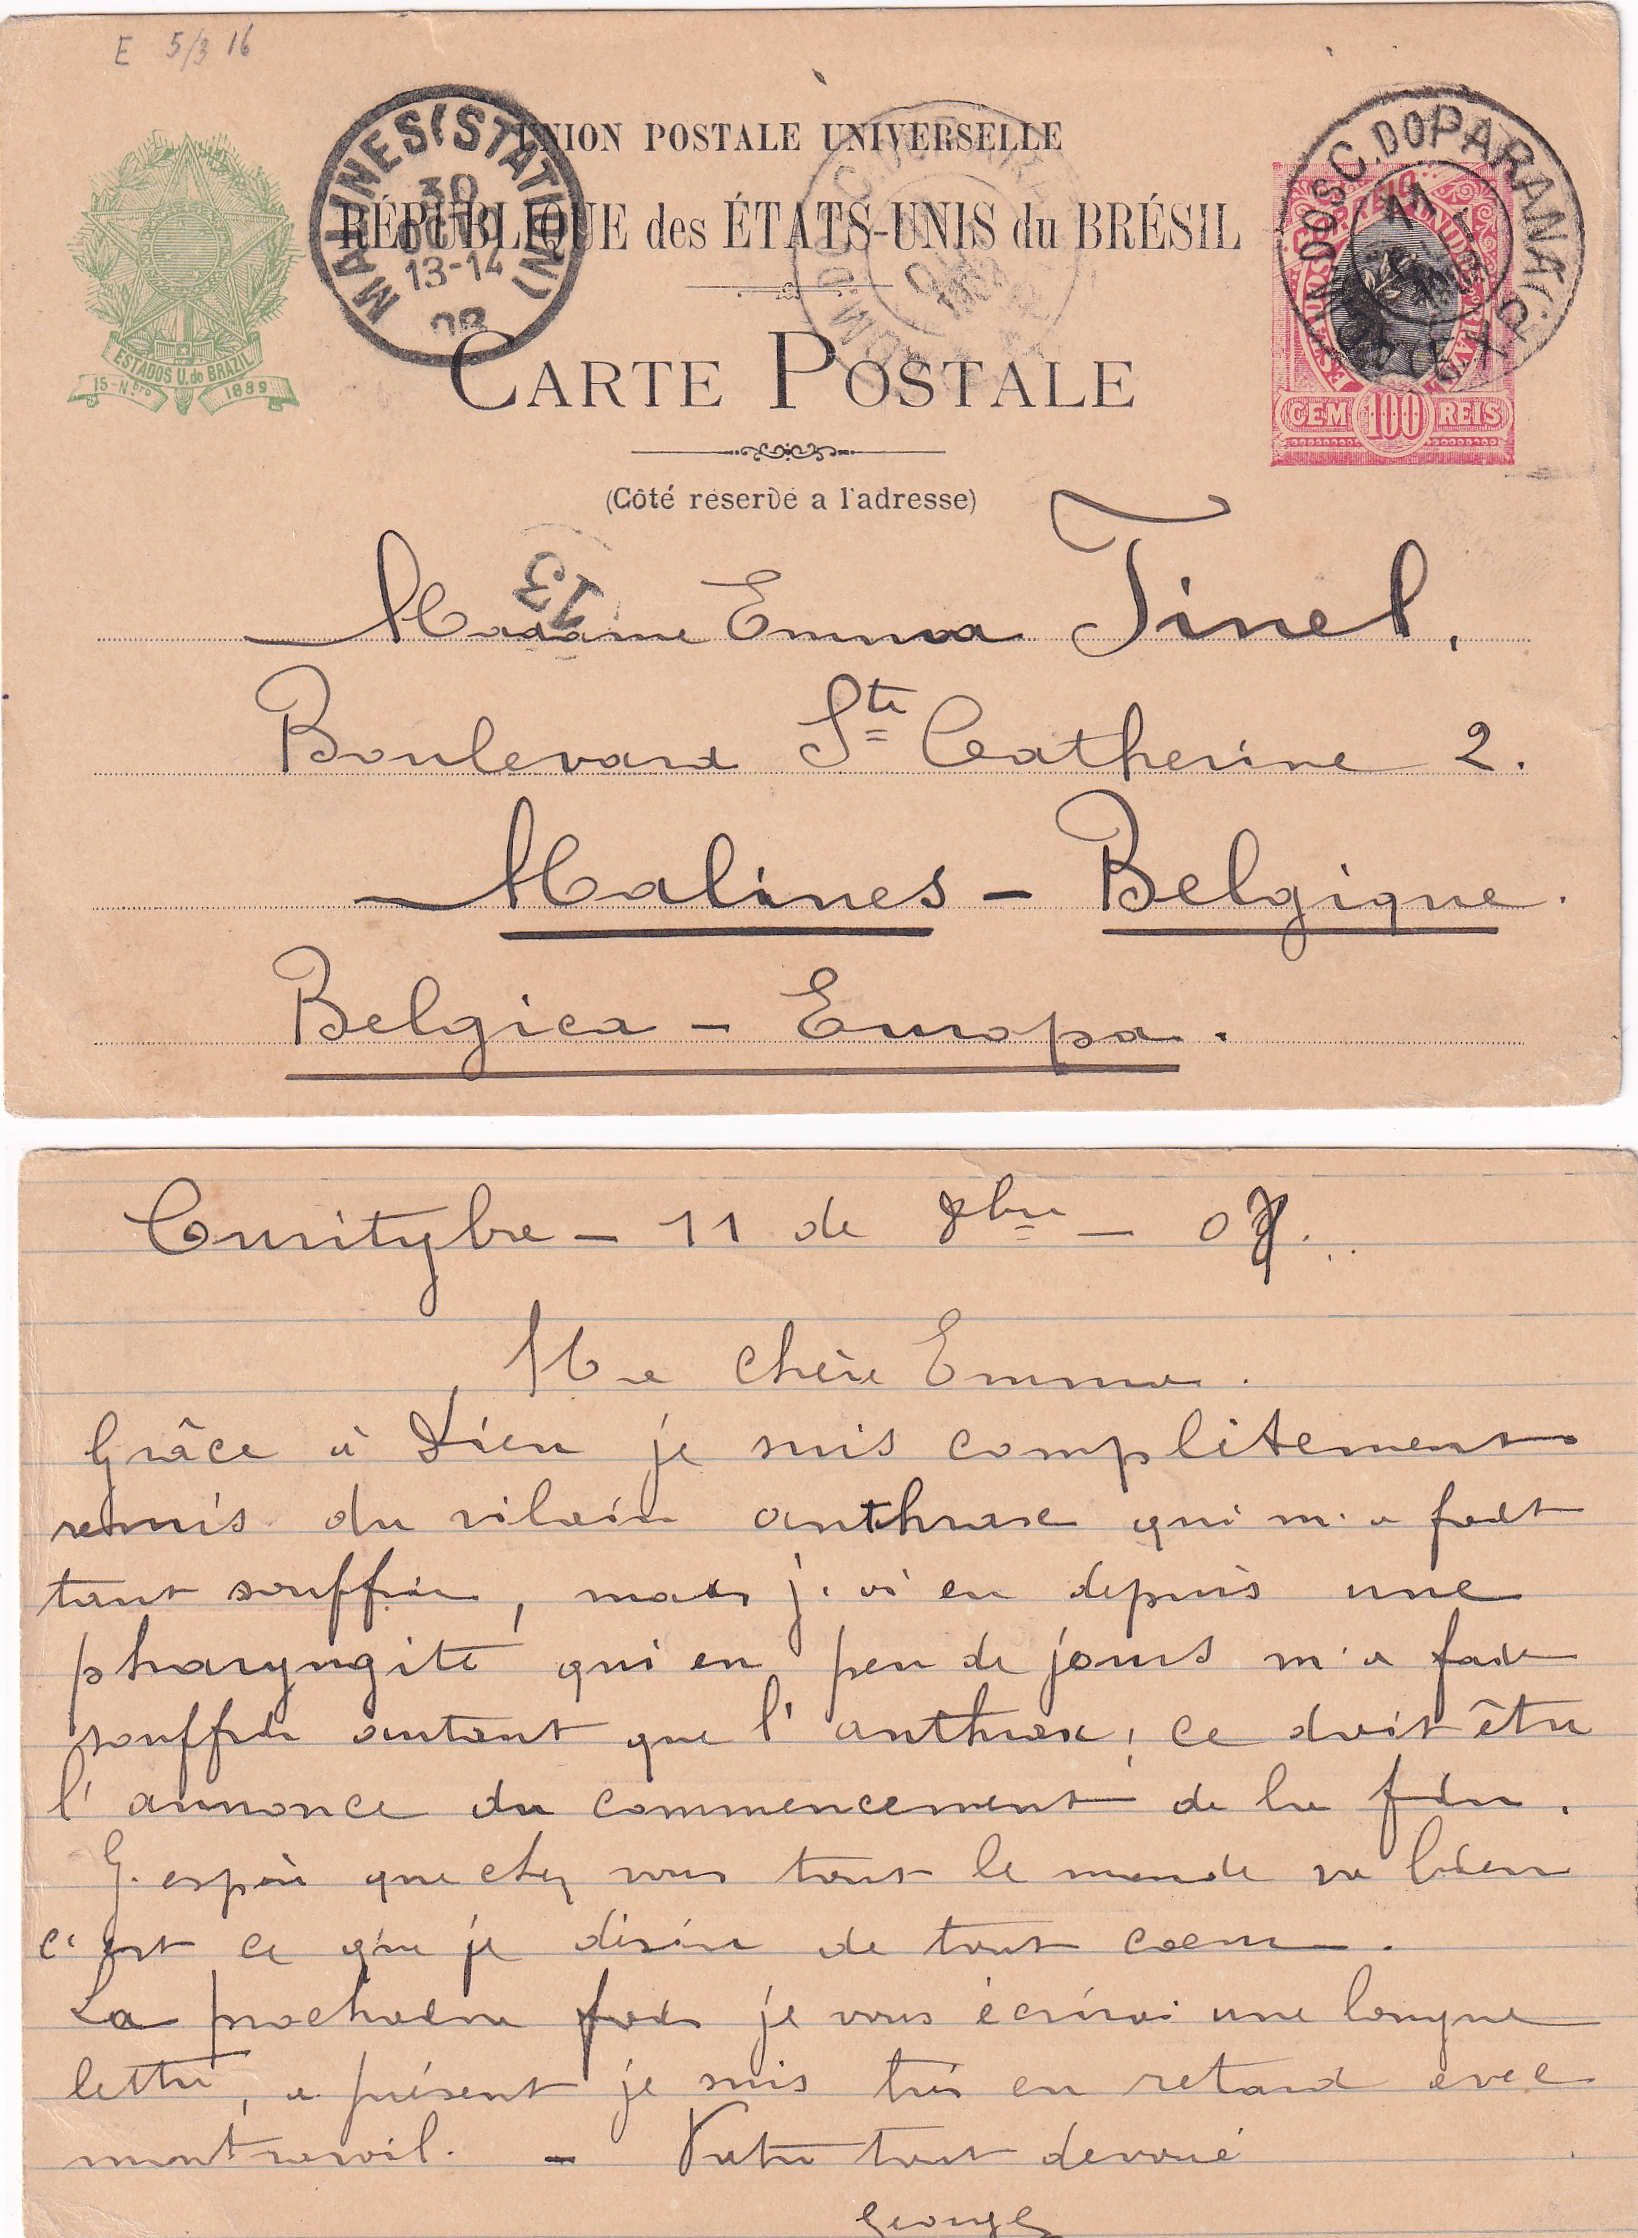 E 5/3 16
UNION POSTALE UNIVERSELLE
RÉPUBLIQUE des ÉTATS-UNIS du BRÉSIL
CARTE POSTALE
(Côté réservé a l'adresse)
ESTADOS U. do BRAZIL
15-Nbro 1889
MALINES (STATION)
30
13-14
C. DO PARANÁ
CORREIO
CEM 100 REIS
13
Madame Emma Tinel,
Boulevard Ste Catherine 2.
Malines - Belgique.
Belgica - Europa.
Curitybe - 11 de 8bre - 0
Ma chère Emma.
Grâce à Dieu je suis complètement
remis du vilain anthrax qui m'a fait
tant souffrir, mais j'ai eu depuis une
pharyngite qui en peu de jours m'a fait
souffrir autant que l'anthrax; ce doit être
l'annonce du commencement de la fin.
J'espère que chez vous tout le monde va bien
c'est ce que je désire de tout coeur.
La prochaine fois je vous écrirai une longue
lettre, a présent je suis très en retard avec
mon travail. - Votre tout dévoué
Georges